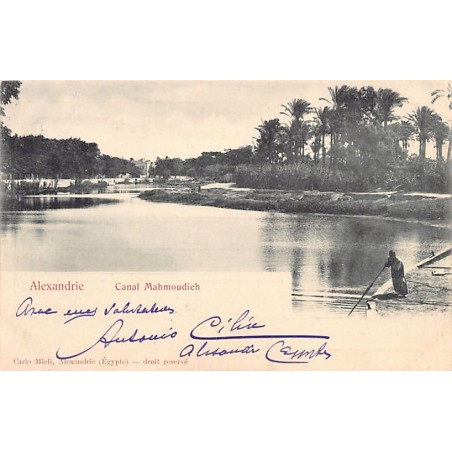 Alexandrie Canal Mahmoudieh
Avec mes salutations
Antonio
Carlo Mieli, Alexandrie (Égypte) — droit reservé